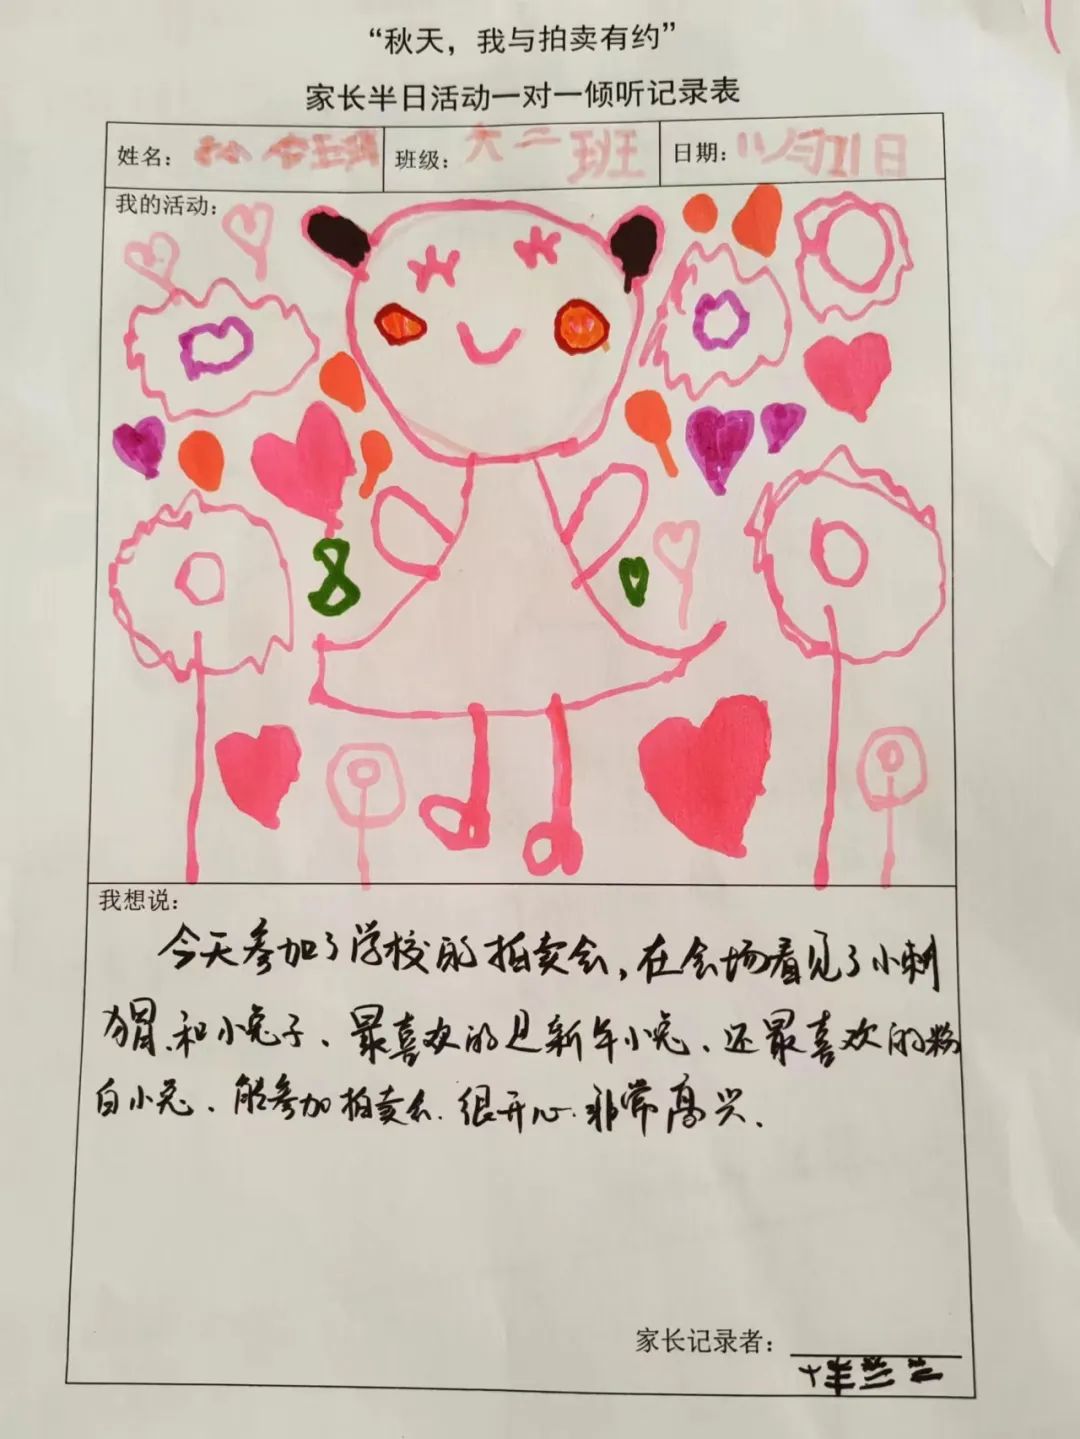 “秋天，我与拍卖有约”
家长半日活动一对一倾听记录表
姓名： 班级：大二班 日期：11月21日
我的活动：
8 0
我想说：
今天参加了学校的拍卖会，在会场看见了小刺
猬、和小兔子、最喜欢的是新年小兔、还最喜欢的粉
白小兔、能参加拍卖会.很开心.非常高兴.
家长记录者：